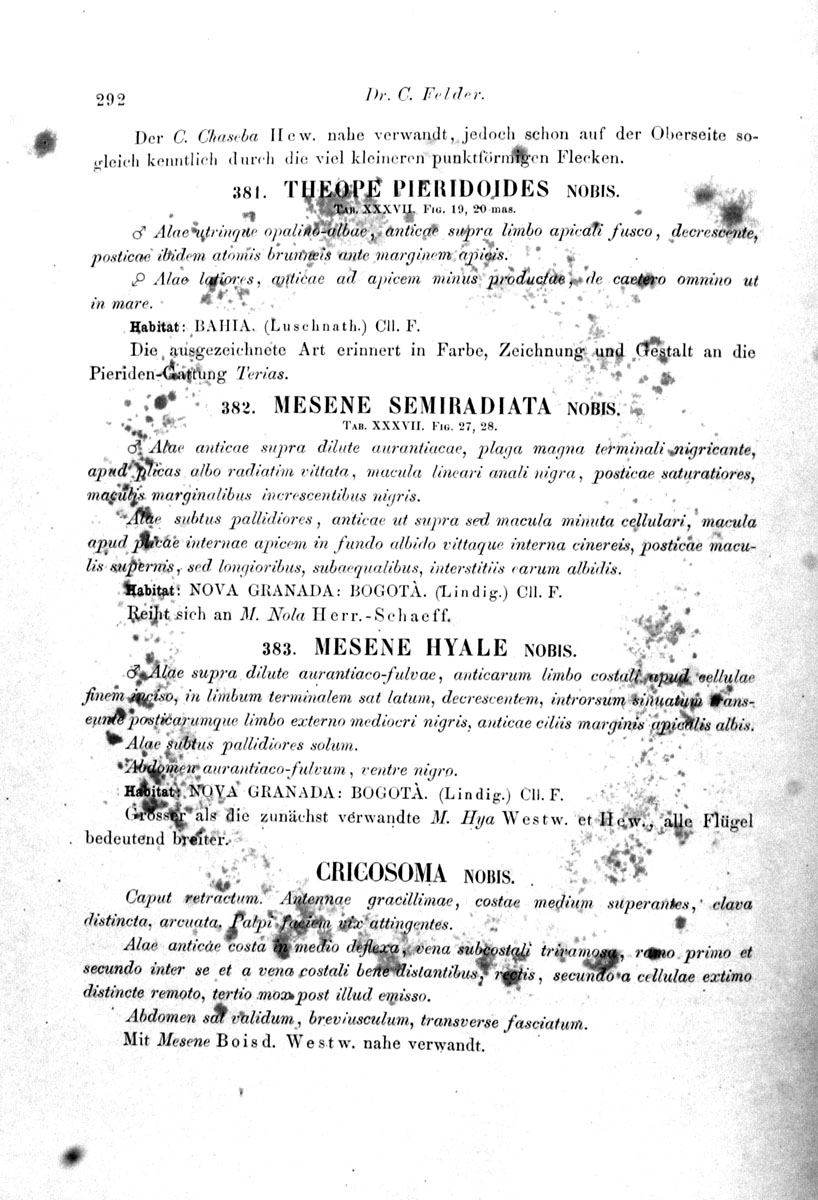 292
Dr. C. Felder.
Der C. Chaseba Hew. nahe verwandt, jedoch schon auf der Oberseite so-
gleich kenntlich durch die viel kleineren punktförmigen Flecken.
381. THEOPE PIERIDOIDES NOBIS.
TAB. XXXVII. FIG. 19, 20 mas.
♂ Alae utrinque opalino-albae, anticae supra limbo apicali fusco, decrescente,
posticae ibidem atomis brunneis ante marginem apicis.
♀ Alae latiores, anticae ad apicem minus productae, de caetero omnino ut
in mare.
Habitat: BAHIA. (Luschnath.) Cll. F.
Die ausgezeichnete Art erinnert in Farbe, Zeichnung und Gestalt an die
Pieriden-Gattung Terias.
382. MESENE SEMIRADIATA NOBIS.
TAB. XXXVII. FIG. 27, 28.
♂ Alae anticae supra dilute aurantiacae, plaga magna terminali nigricante,
apud plicas albo radiatim vittata, macula lineari anali nigra, posticae saturatiores,
maculis marginalibus increscentibus nigris.
Alae subtus pallidiores, anticae ut supra sed macula minuta cellulari, macula
apud plicae internae apicem in fundo albido vittaque interna cinereis, posticae macu-
lis supernis, sed longioribus, subaequalibus, interstitiis earum albidis.
Habitat: NOVA GRANADA: BOGOTÀ. (Lindig.) Cll. F.
Reiht sich an M. Nola Herr.-Schaeff.
383. MESENE HYALE NOBIS.
♂ Alae supra dilute aurantiaco-fulvae, anticarum limbo costali apud cellulae
finem inciso, in limbum terminalem sat latum, decrescentem, introrsum sinuatum trans-
eunte posticarumque limbo externo mediocri nigris, anticae ciliis marginis apicalis albis.
Alae subtus pallidiores solum.
Abdomen aurantiaco-fulvum, ventre nigro.
Habitat: NOVA GRANADA: BOGOTÀ. (Lindig.) Cll. F.
Grösser als die zunächst verwandte M. Hya Westw. et Hew., alle Flügel
bedeutend breiter.
CRICOSOMA NOBIS.
Caput retractum. Antennae gracillimae, costae medium superantes, clava
distincta, arcuata. Palpi faciem vix attingentes.
Alae anticae costa in medio deflexa, vena subcostali triramosa, ramo primo et
secundo inter se et a vena costali bene distantibus, rectis, secundo a cellulae extimo
distincte remoto, tertio mox post illud emisso.
Abdomen sat validum, breviusculum, transverse fasciatum.
Mit Mesene Boisd. Westw. nahe verwandt.